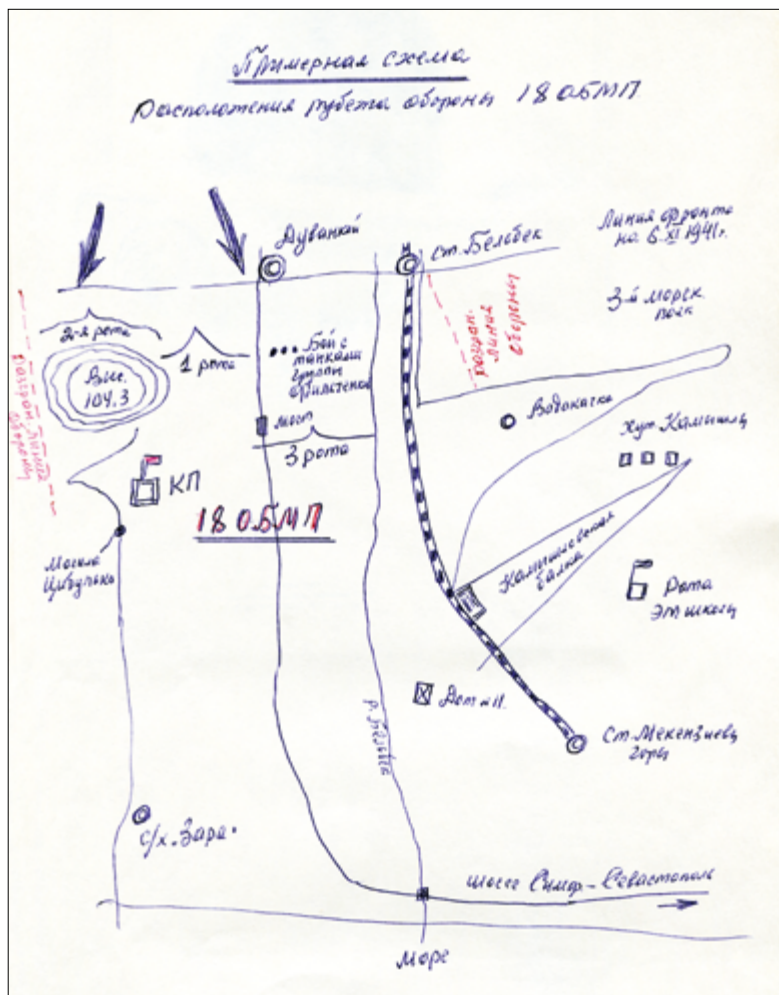 Примерная схема
Расположения рубежа обороны 18 ОБМП
Дуванкой
ст. Белбек
Линия фронта
на 6.XI 1941г.
3-й морск.
полк
Разгран.
линия
обороны
2-я рота
1 рота
Выс.
104.3
Разгран. линия
обороны
Бой с
танками
группы
Фильченкова
мост
3 рота
Водокачка
Хут. Камышлы
КП
18 ОБМП
Могила
Цибулько
Камышловская
балка
Рота
ЭМ школы
Дот № 11.
р. Бельбек
Ст. Мекензиевы
горы
с/х. "Заря"
шоссе Симф-Севастополь
Море